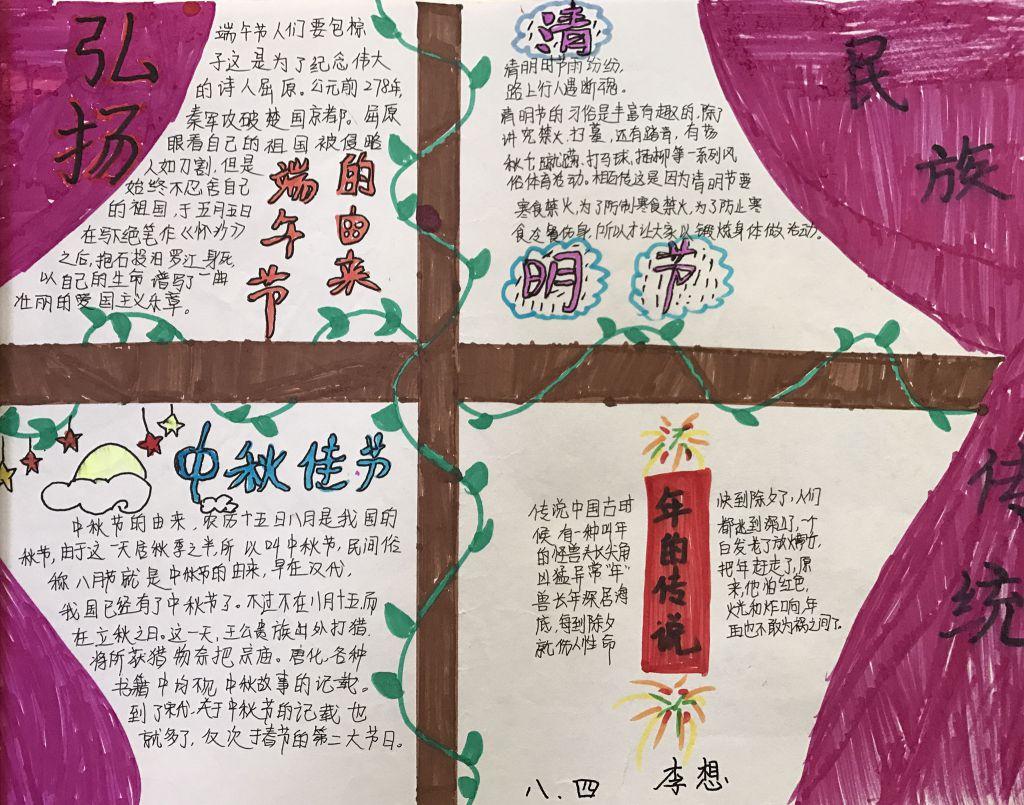 弘扬
民族
传统
端午节人们要包粽
子这是为了纪念伟大
的诗人屈原。公元前278年,
秦军攻破楚国京都。屈原
眼看自己的祖国被侵略
人如刀割,但是
始终不忍舍自己
的祖国,于五月五日
在写下绝笔作《怀沙》
之后,抱石投汨罗江身死
以自己的生命谱写了一曲
壮丽的爱国主义乐章。
端午节
的由来
清
清明时节雨纷纷,
路上行人遇断魂。
清明节的习俗是丰富有趣的,除了
讲究禁火扫墓,还有踏青,有荡
秋千,蹴鞠,打马球,插柳等一系列风
俗体育活动。相传这是因为清明节要
寒食禁火,为了防制寒食禁火,为了防止寒
食所以才让大家以锻炼身体做活动。
明 节
中秋佳节
中秋节的由来,农历十五日八月是我国的
秋节,由于这一天居秋季之半,所以叫中秋节,民间俗
称八月节就是中秋节的由来,早在汉代,
我国已经有了中秋节了。不过不在八月十五而
在立秋之日。这一天,王公贵族出外打猎.
将所获猎物奈把宗庙。唐代,各种
书籍中均不见中秋故事的记载。
到了宋代,关于中秋节的记载也
就多了,仅次于春节的第二大节日。
年的传说
传说中国古时
候,有一种叫年
的怪兽头长尖角
凶猛异常"年"
兽长年深居海
底,每到除夕
就伤人性命
快到除夕了,人们
都逃到深山了,一个
白发老了放火
把年赶走了,原
来,他怕红色,
火光和炸响,年
再也不敢为祸之间了.
八.四 李想